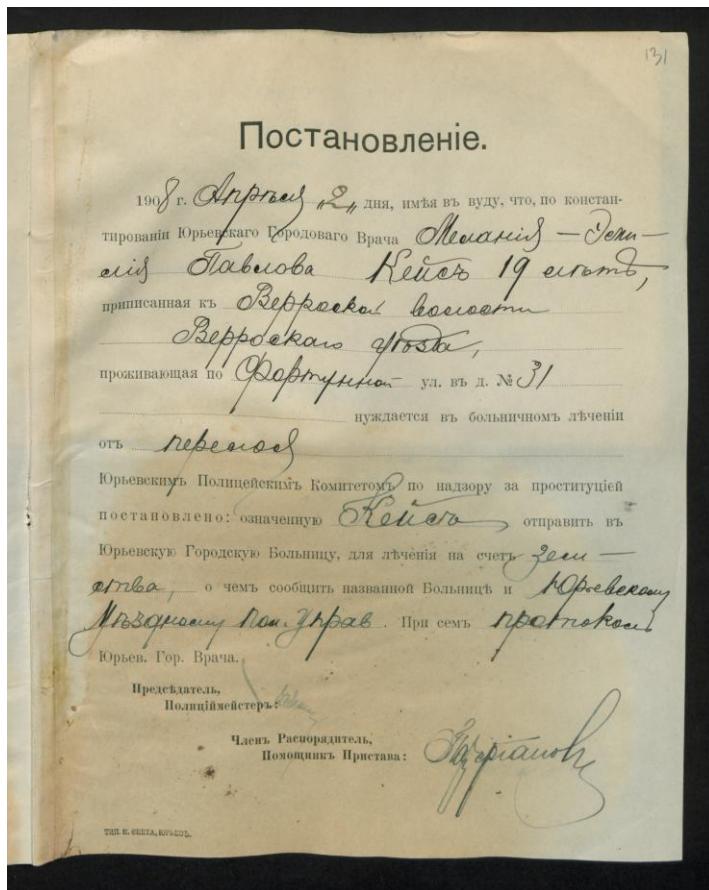 131
Постановленіе.
1908 г. Апрѣля „2„ дня, имѣя въ вуду, что, по констан-
тированіи Юрьевскаго Городоваго Врача Меланія –
лія Павлова Кейсъ 19 лѣтъ,
приписанная къ Верроской волости
Верроскаго уѣзда,
проживающая по Фортунной ул. въ д. № 31
нуждается въ больничномъ лѣченіи
отъ
Юрьевскимъ Полицейскимъ Комитетомъ по надзору за проституціей
постановлено: означенную Кейсъ отправить въ
Юрьевскую Городскую Больницу, для лѣченія на счетъ зем –
ства, о чемъ сообщить названной Больницѣ и Юрьевскому
Уѣздному Пол. Управ. При семъ протоколъ
Юрьев. Гор. Врача.
Предсѣдатель,
Полиціймейстеръ:
Членъ Распорядитель,
Помощникъ Пристава:
ТИП. К. СЕЕТА, ЮРЬЕВЪ.